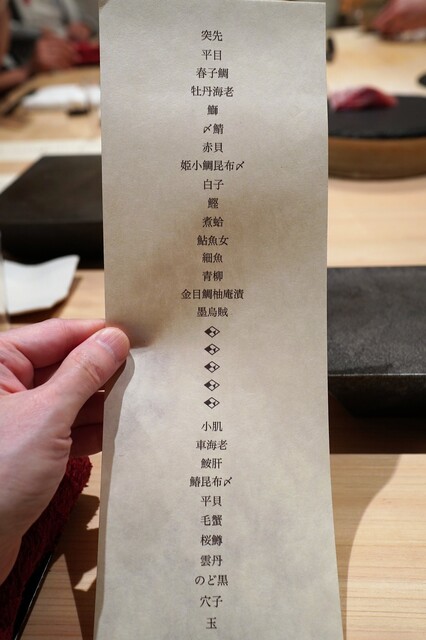 突先
平目
春子鯛
牡丹海老
鰤
〆鯖
赤貝
姫小鯛昆布〆
白子
鰹
煮蛤
鮎魚女
細魚
青柳
金目鯛柚庵漬
墨烏賊
小肌
車海老
鮟肝
鰆昆布〆
平貝
毛蟹
桜鱒
雲丹
のど黒
穴子
玉